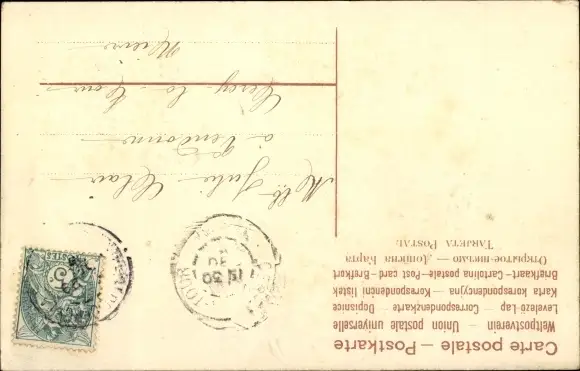 Carte postale – Postkarte
Weltpostverein – Union postale universelle
Levelező-Lap – Correspondenzkarte – Dopisnice
Karta korespondencyjna – Korespondenční lístek
Briefkaart – Cartolina postale – Post card – Brefkort
Открытое письмо –
TARJETA POSTAL
Melle Julie Clair
à Vendonne
Cercy-la-Tour
Nièvre
POSTES
5